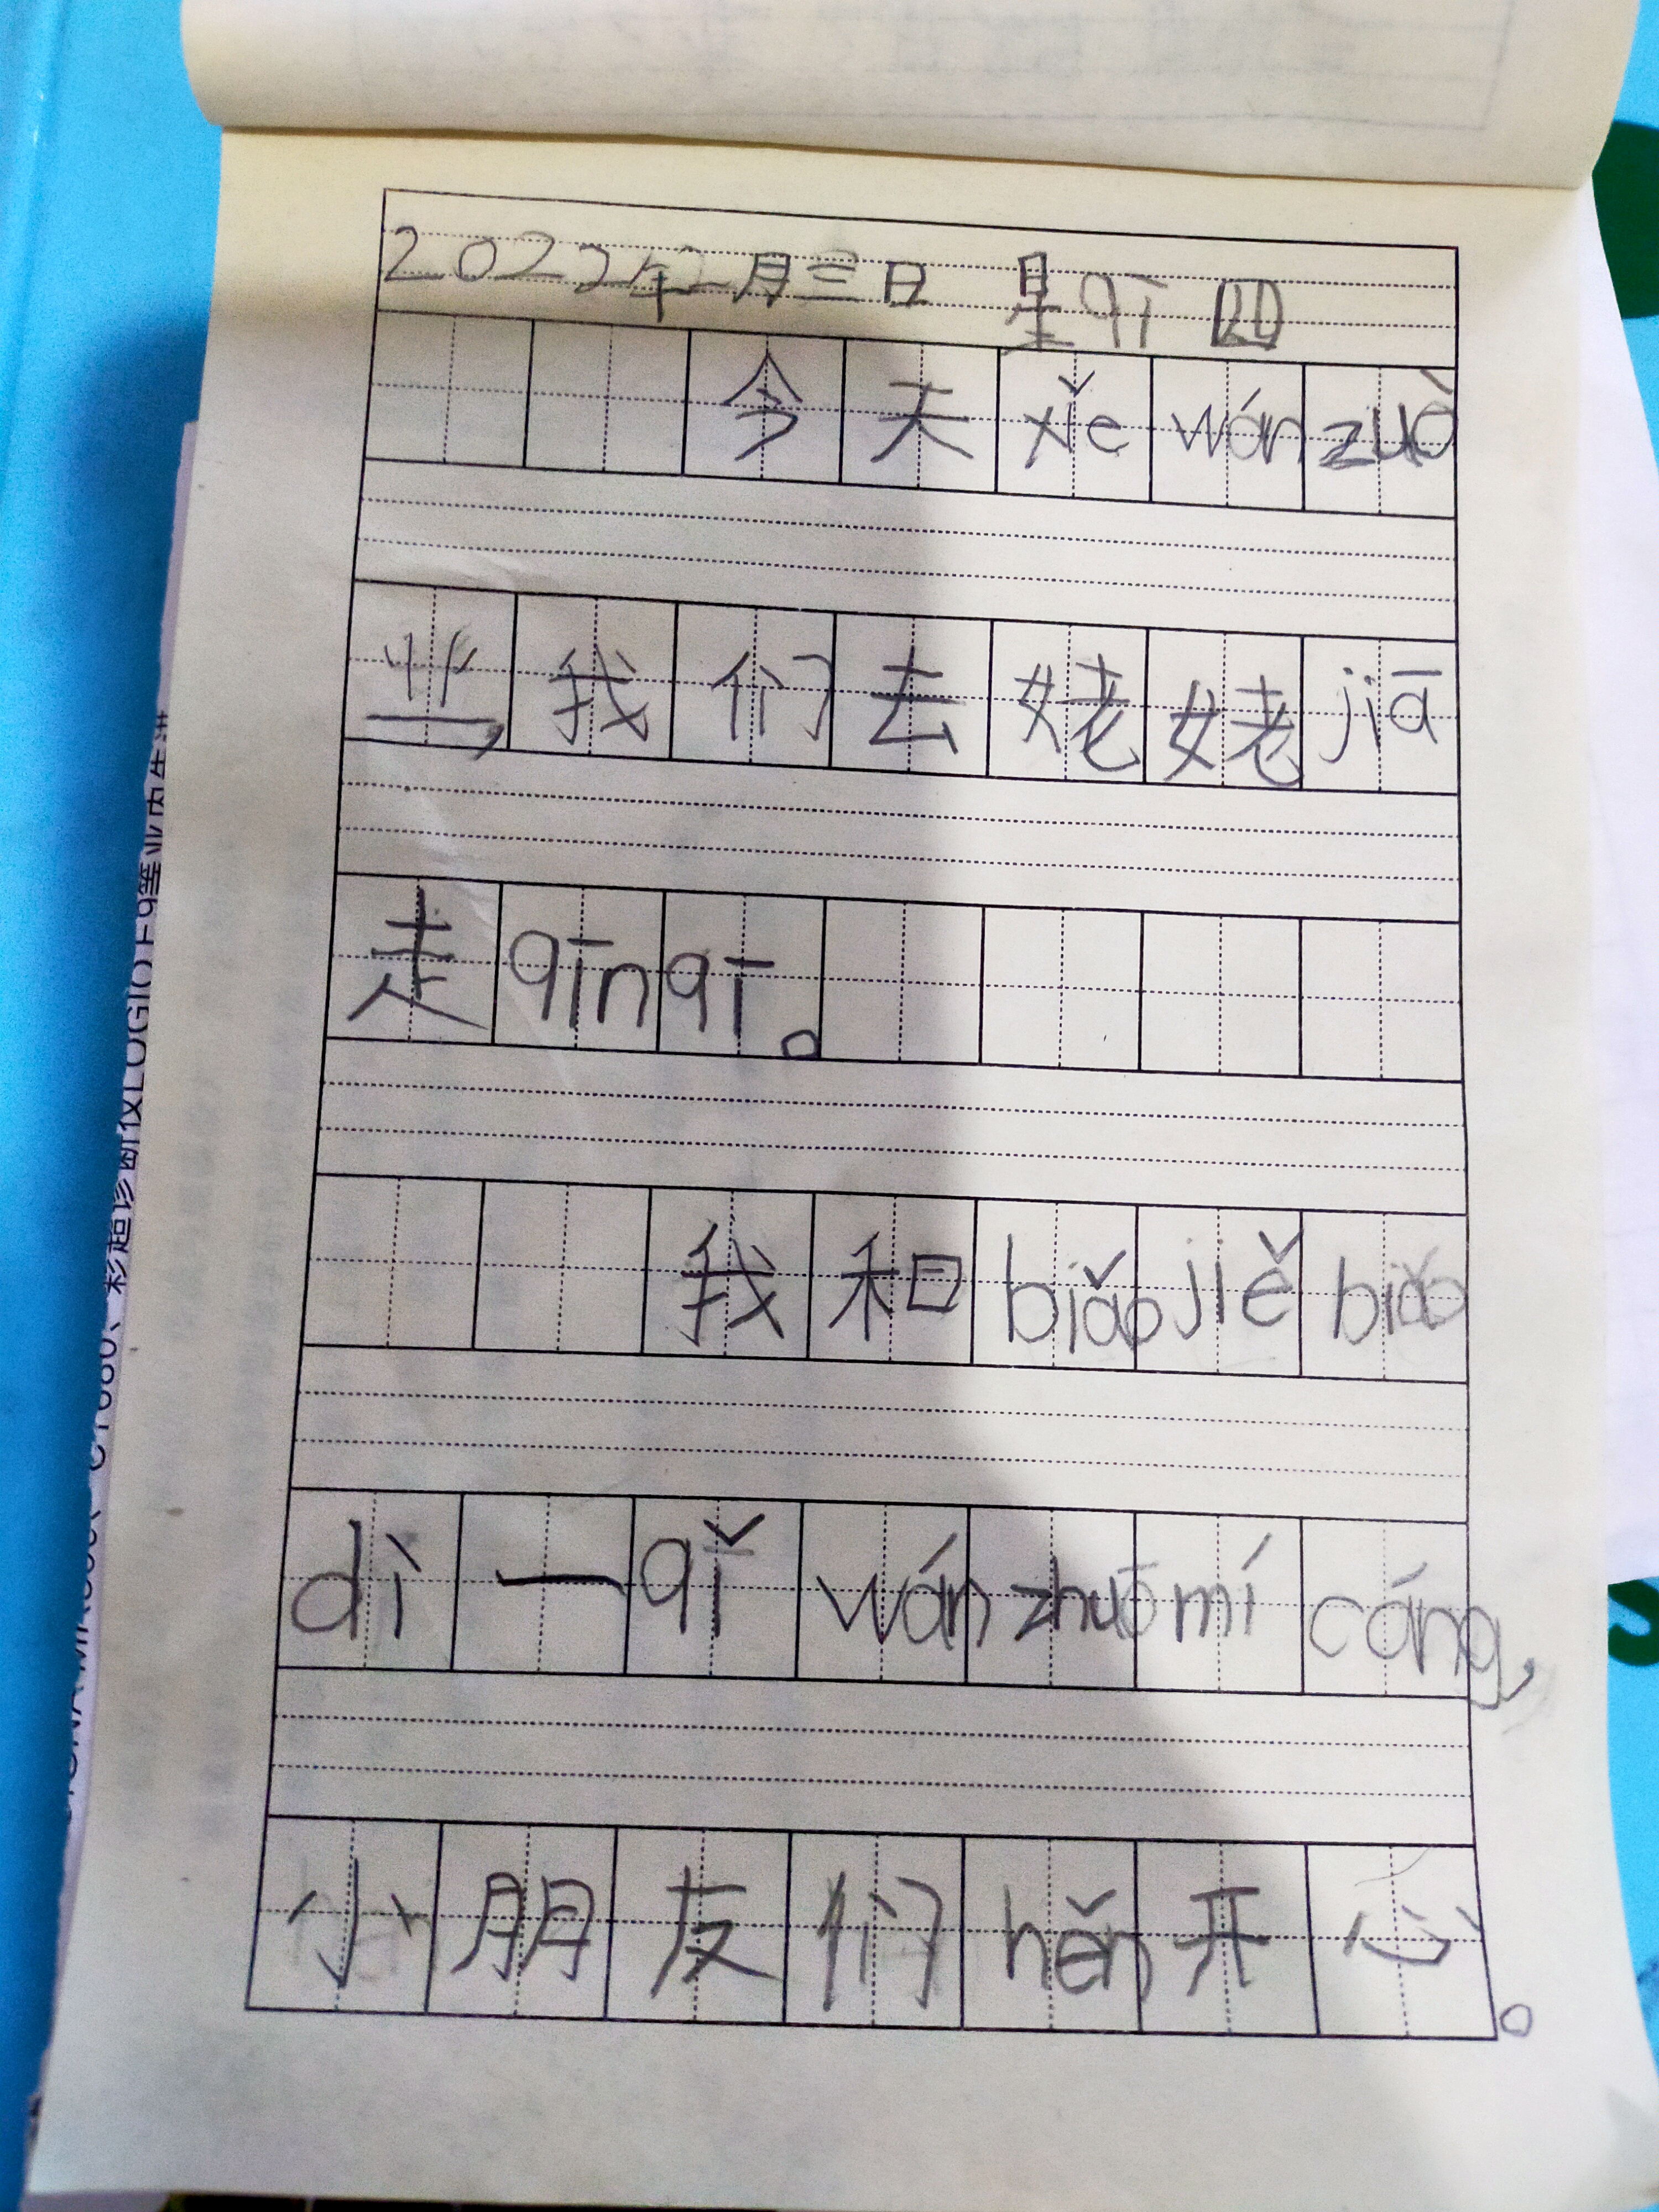 2022年2月三日 星qī四
今天xiě wán zuò
业,我们去姥姥jiā
走qīn qī。
我和biǎo jiě biǎo
dì一qǐ wán zhuō mí cáng,
小朋友们hěn开心。